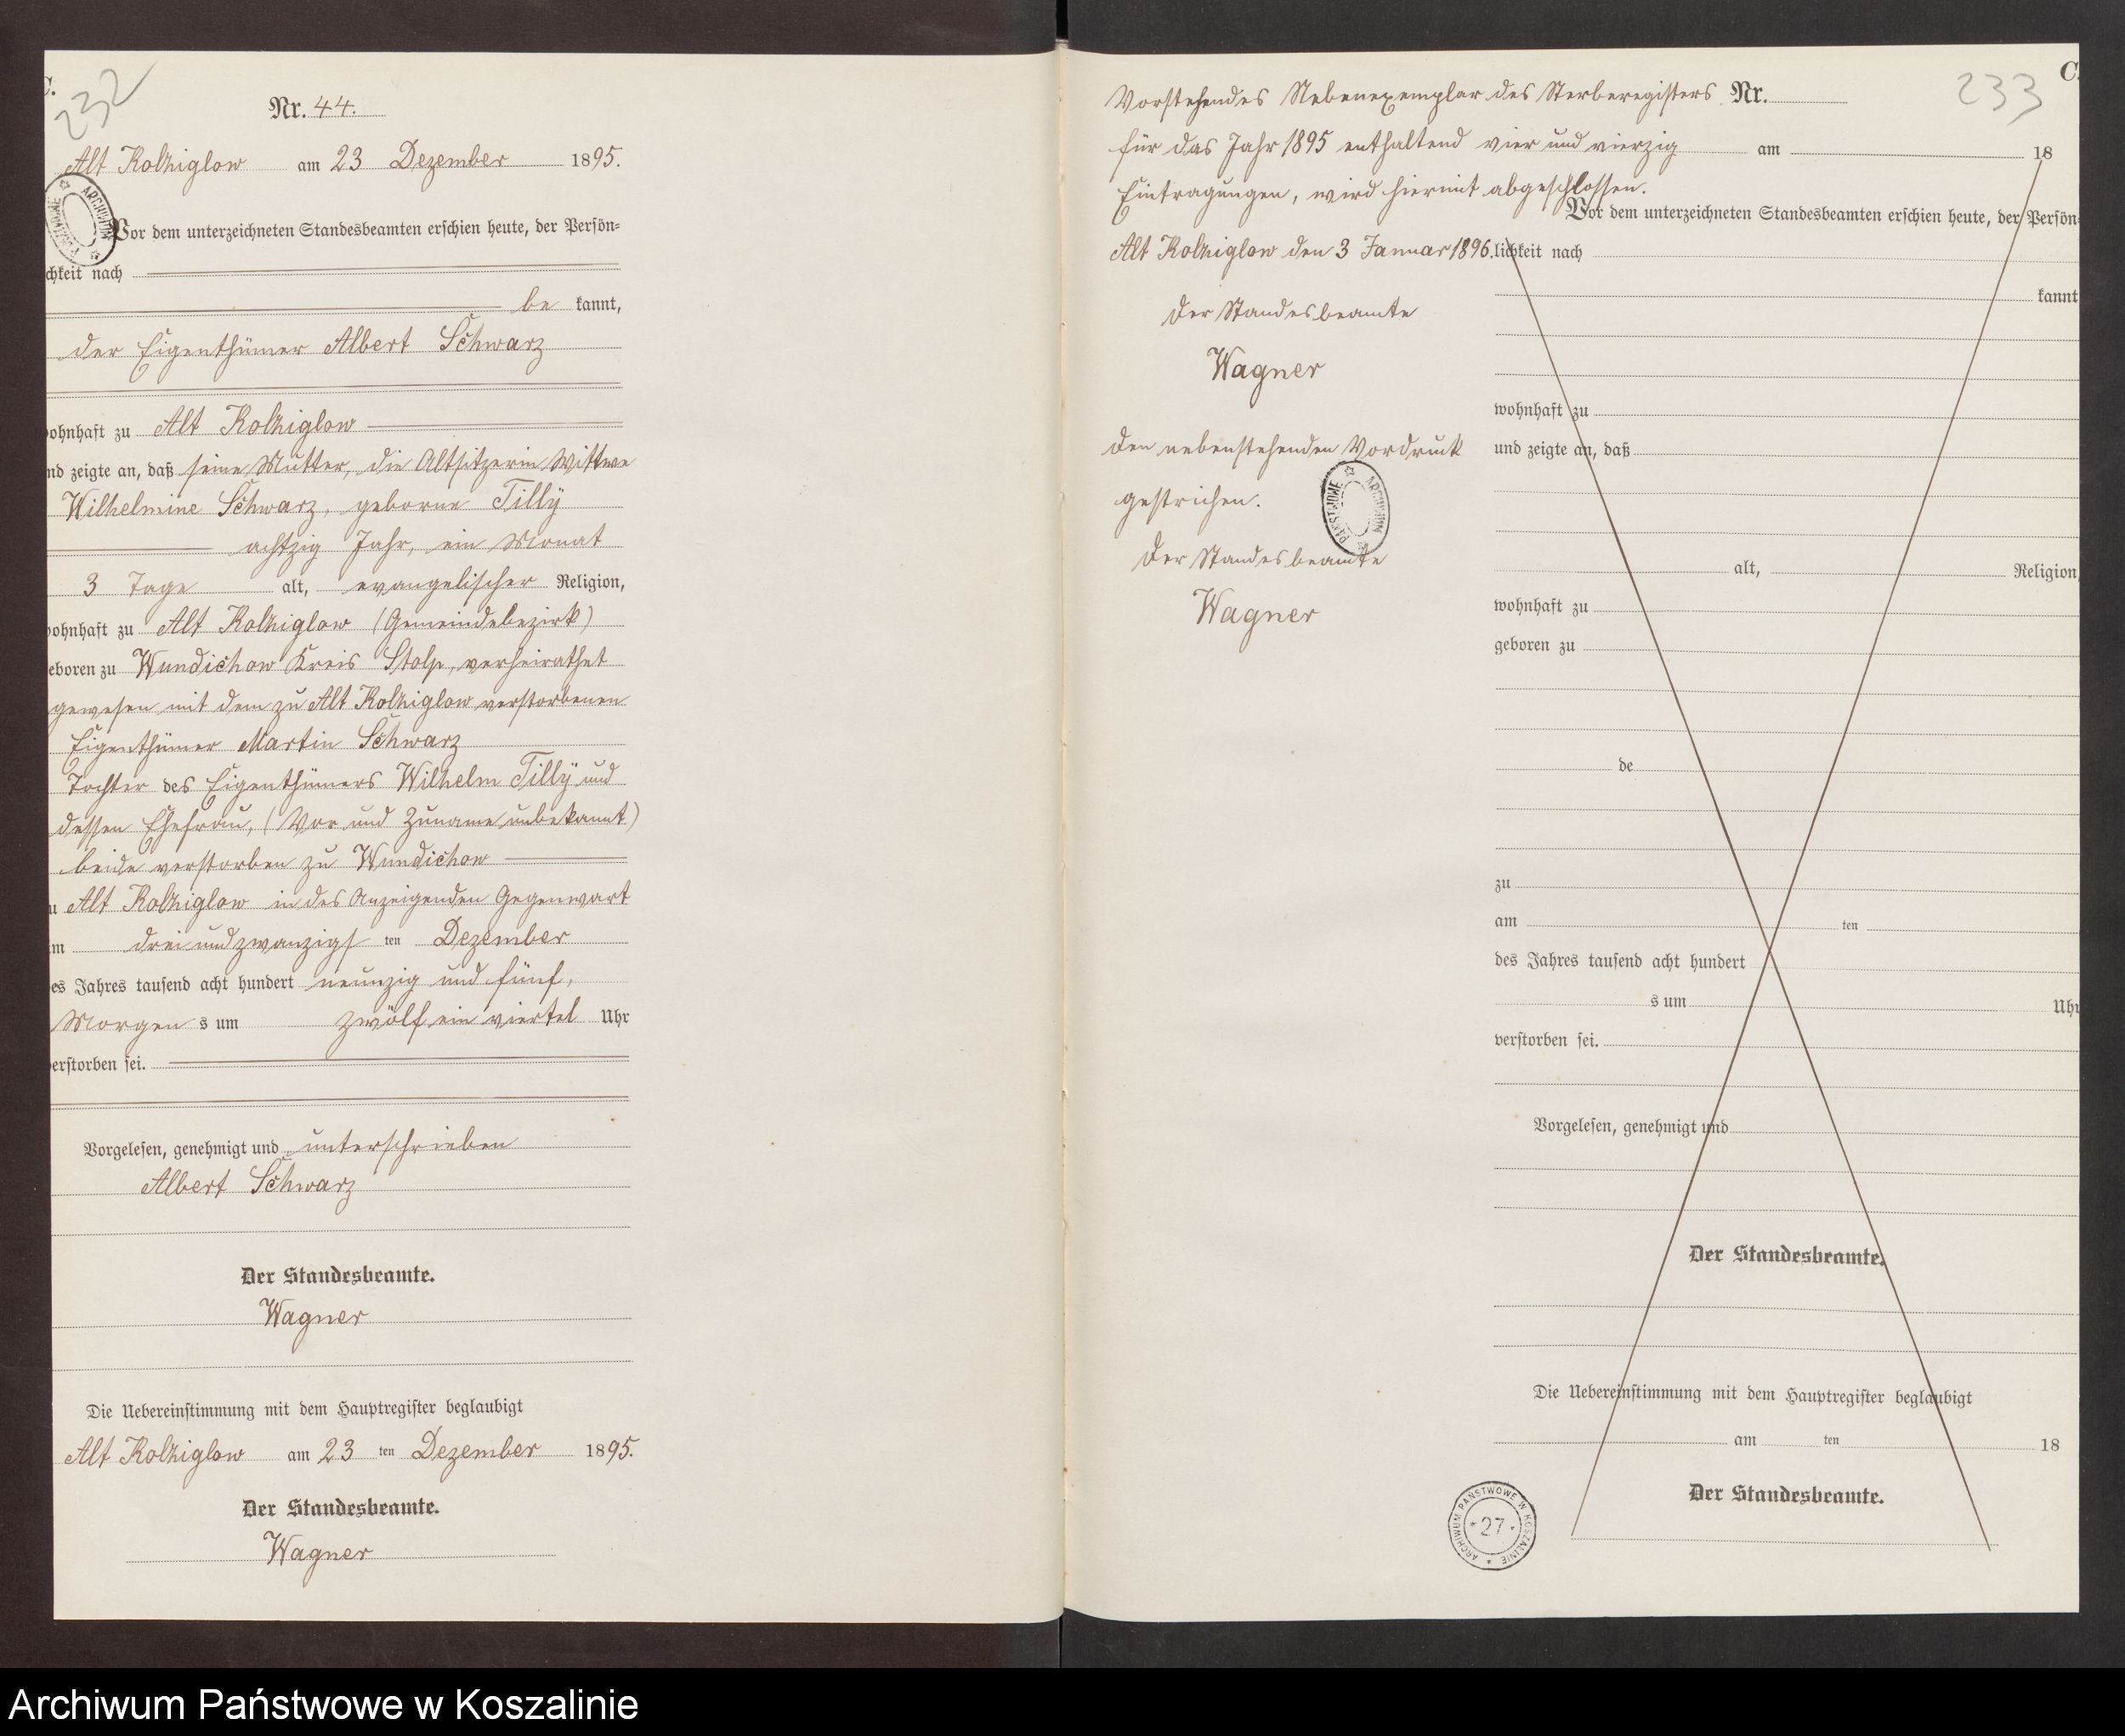 C.
232
Nr. 44.
Alt Kolziglow am 23 Dezember 1895.
Vor dem unterzeichneten Standesbeamten erschien heute, der Persön-
chkeit nach
be kannt,
der Eigenthümer Albert Schwarz
ohnhaft zu Alt Kolziglow
nd zeigte an, daß seine Mutter, die Altsitzerin Wittwe
Wilhelmine Schwarz, geborne Tillÿ
achtzig Jahr, ein Monat
3 Tage alt, evangelischer Religion,
ohnhaft zu Alt Kolziglow (Gemeindebezirk)
eboren zu Wundichow Kreis Stolp, verheirathet
gewesen mit dem zu Alt Kolziglow verstorbenen
Eigenthümer Martin Schwarz
Tochter des Eigenthümers Wilhelm Tillÿ und
dessen Ehefrau, (Vor und Zuname unbekannt)
beide verstorben zu Wundichow
u Alt Kolziglow in des Anzeigenden Gegenwart
m drei und zwanzigs ten Dezember
es Jahres tausend acht hundert neunzig und fünf,
Morgen s um zwölf ein viertel Uhr
erstorben sei.
Vorgelesen, genehmigt und unterschrieben
Albert Schwarz
Der Standesbeamte.
Wagner
Die Uebereinstimmung mit dem Hauptregister beglaubigt
Alt Kolziglow am 23 ten Dezember 1895.
Der Standesbeamte.
Wagner
C.
233
Vorstehendes Nebenexemplar des Sterberegisters
für das Jahr 1895 enthaltend vier und vierzig
Eintragungen, wird hiermit abgeschlossen.
Alt Kolziglow den 3 Januar 1896.
Der Standesbeamte
Wagner
Den nebenstehenden Vordruck
gestrichen.
Der Standesbeamte
Wagner
ARCHIWUM PAŃSTWOWE
Nr.
am 18
Vor dem unterzeichneten Standesbeamten erschien heute, der Persön-
lichkeit nach
kannt
wohnhaft zu
und zeigte an, daß
alt, Religion,
wohnhaft zu
geboren zu
de
zu
am ten
des Jahres tausend acht hundert
s um Uhr
verstorben sei.
Vorgelesen, genehmigt und
Der Standesbeamte.
Die Uebereinstimmung mit dem Hauptregister beglaubigt
am ten 18
Der Standesbeamte.
ARCHIWUM PAŃSTWOWE W KOSZALINIE
27
Archiwum Państwowe w Koszalinie